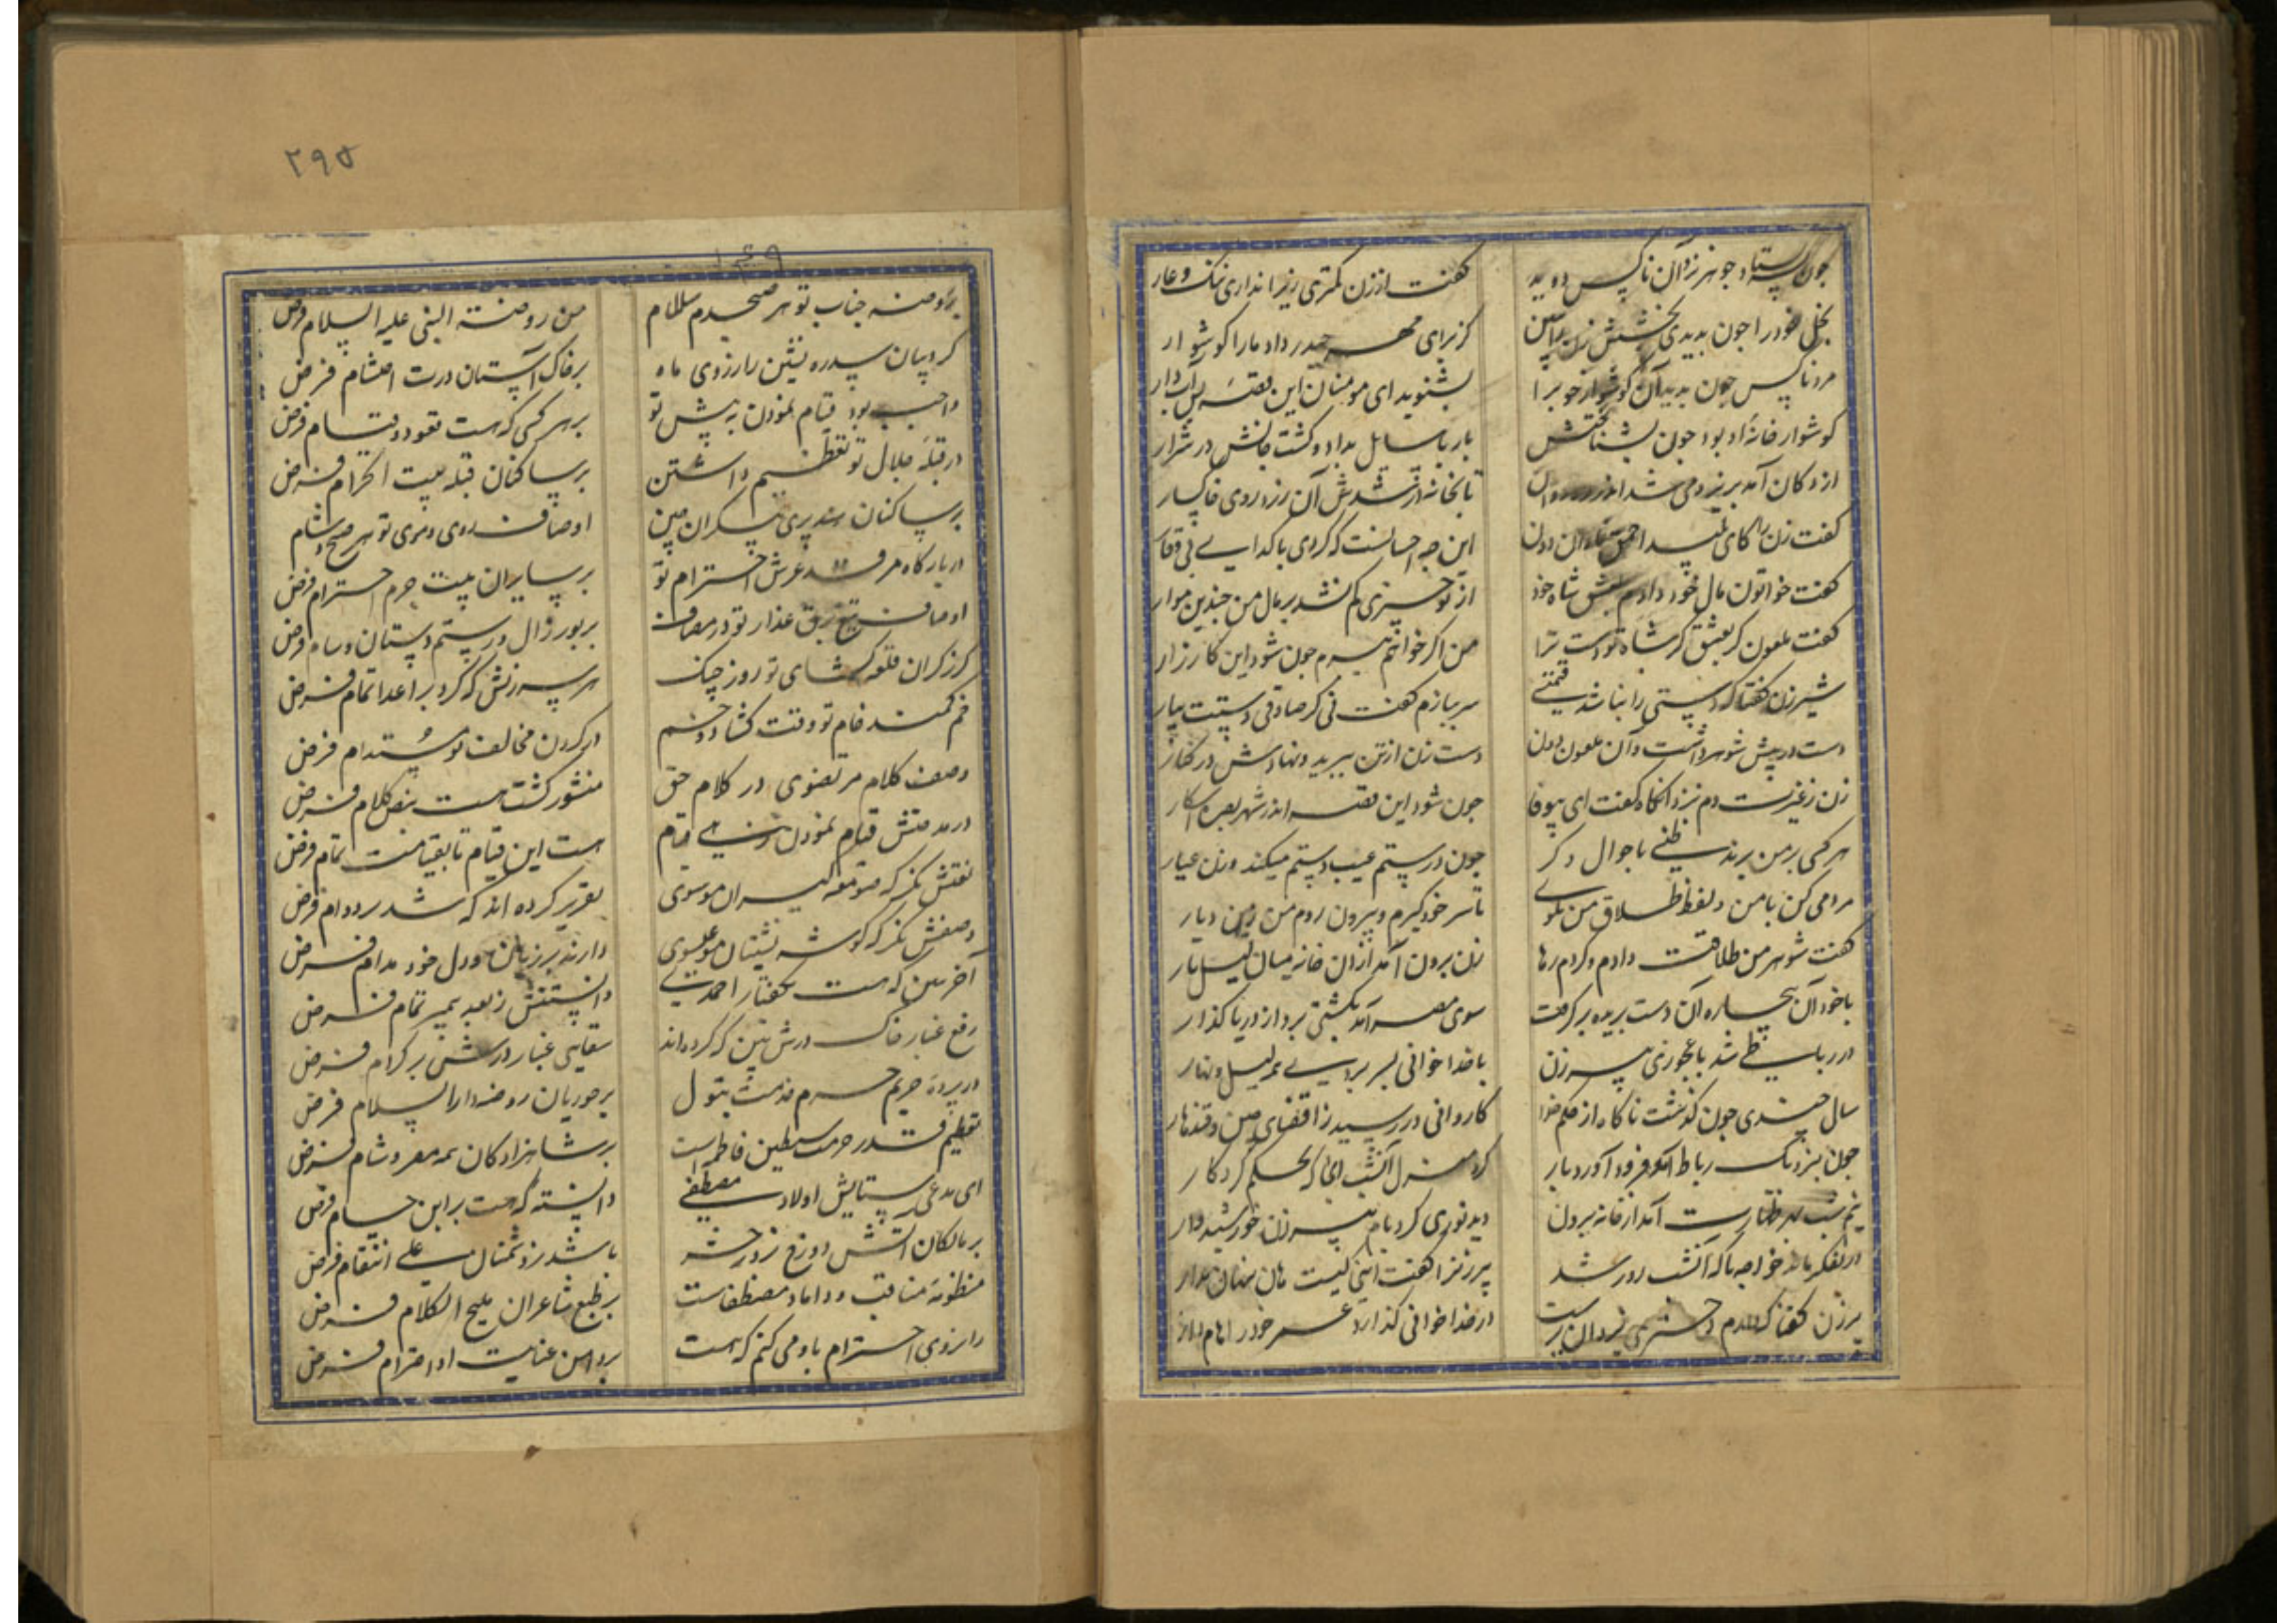 چون ستاد جوهر نزد آن ناکس دوید
کفت از زن کمتری زیرا نداری ننک و عار
بخل خود را چون بدیدی بخشش زن را ببین
کز برای مهر حیدر داد ما را کوشوار
مرد ناکس چون بدید آن کوشوار خوبرا
بشنوید ای مومنان این قصهٔ
کوشوار خانهٔ او بود چون بشناختش
باز با سایل بداد و کشت جانش در شرار
از دکان آمد برِ زن می شد اندر
تا بخانه در شدش آن زرد روی خاکسار
کفت زن را کای
این چه احسانست که کردی با کدایی بی وقار
کفت خواتون مال خود دادم بعشق شاه خود
از تو چیزی کم نشد بر مال من چندین موار
کفت ملعون کر بعشق کر شاه تو دست ترا
من اکر خواهم ببرم چون شود این کارزار
شیر زن کفتا که دستی را نباشد قیمتی
سر ببازم کفت نی کر صادقی دستت بیار
دست در پیش شوهر داشت و آن ملعون دون
دست زن از تن ببرید و نهادش در کنار
زن ز غیرت دم نزد آنکاه کفت ای بیوفا
چون شود این قصه اندر شهر بصره آشکار
هر کسی بر من برند ظنی باحوال دکر
چون درستم عیب دستم میکند وزن عیار
مردمی کن با من و لفظ طلاق من بکوی
تا سر خود کیرم و بیرون روم من زین دیار
کفت شوهر من طلاقت دادم و کردم رها
زن برون آمد از آن خانه میان لیل تار
با خود آن بیچاره آن دست بریده بر کرفت
سوی مصر آمد بکشتی برد از دریا کذار
در رباطی شد با عجوزی پیر زن
با خدا خوانی بسر بردی همه لیل و نهار
سال چندی چون کذشت ناکاه از حکم خدا
کاروانی در رسید ز اقصای چین و قندهار
چون بنزدیک رباط آنکو فرود آورد بار
کرد منزل آنشب آنجا که بحکم کردکار
نیم شب بهر طهارت آمد از خانه برون
دید نوری کرد بام پیر زن خورشید وار
در تفکر ماند خواجه تا که آنشب روز شد
پیر زنرا کفت اینجا کیست هان پنهان مدار
پیر زن کفتا که دارم دختری
در خدا خوانی کذارد عمر خود را
۲۹۵
۱۴۹
بر روضه جناب تو هر صبحدم سلام
من روضة النبی علیه السلام فرض
کروبیان سدره نشین را ز روی ماه
بر خاک آستان درت احتشام فرض
واجب بود قیام نمودن به پیش تو
بر هر کسی که هست قعود و قیام فرض
در قبلهٔ جلال تو تعظیم داشتن
بر ساکنان قبله بیت الحرام فرض
بر ساکنان سد پری پیکران چین
اوصاف روی و موی تو هر صبح و شام
در بارکاه مرقد عرش احترام تو
بر سایران بیت حرم احترام فرض
اوصاف تیغ برق عذار تو در مصاف
بر پور زال و رستم دستان و سام فرض
کرز کران قلعه کشای تو روز جنک
هر سرزنش که کرد بر اعدا تمام فرض
خم کمند خام تو وقت کشاد و خشم
در کردن مخالف تو مستدام فرض
وصف کلام مرتضوی در کلام حق
منشور کشت هست بنص کلام فرض
در مدحتش قیام نمودن
هست این قیام تا بقیامت تمام فرض
نعتش نکر که صومعه کیران موسوی
تقریر کرده اند که شد بر دوام فرض
وصفش نکر که کوشه نشینان عیسوی
دارند بر زبان و دل خود مدام فرض
آخر ببین که هست بکفتار احمدی
دانستنش ز بعد پیمبر تمام فرض
رفع غبار خاک درش بین که کرده اند
سقایی غبار درش بر کرام فرض
در پردهٔ حریم حرم خدمت بتول
بر حوریان روضه دار السلام فرض
تعظیم قدر حرمت سبطین فاطمه است
بر شاهزادکان همه مصر و شام فرض
ای مدعی ستایش اولاد مصطفی
دانسته که هست بر این حسام فرض
بر مالکان آتش دوزخ ز روز حشر
باشد ز دشمنان علی انتقام فرض
منظومهٔ مناقب داماد مصطفاست
بر طبع شاعران ملیح الکلام فرض
را ز روی احترام یاد می کنم که هست
بر دامن عنایت او احترام فرض